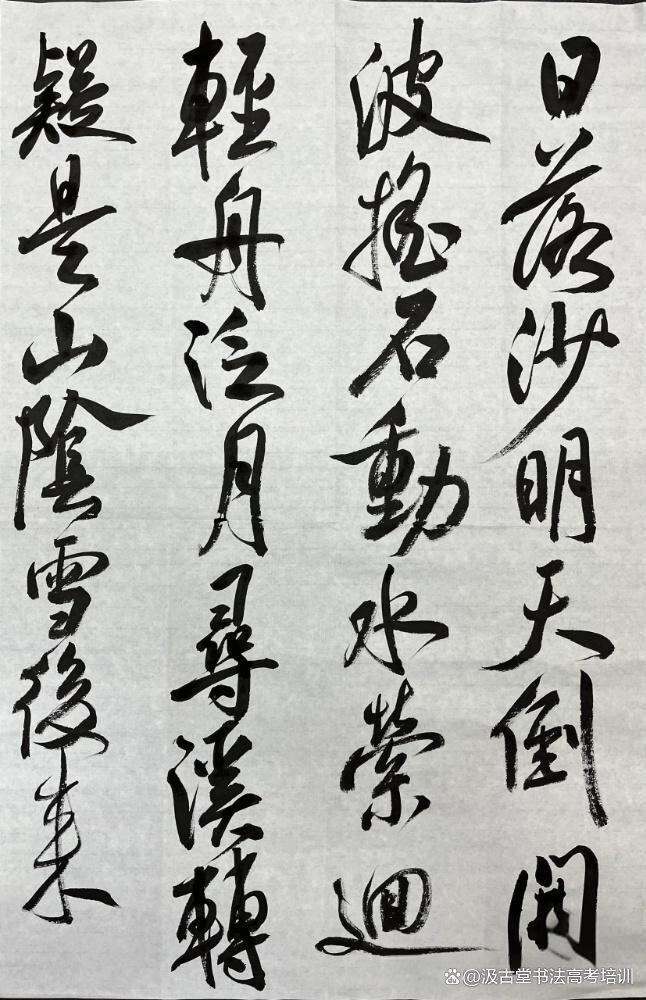 日落沙明天倒開
波搖石動水縈迴
輕舟泛月尋溪轉
疑是山陰雪後來
@汲古堂书法高考培训